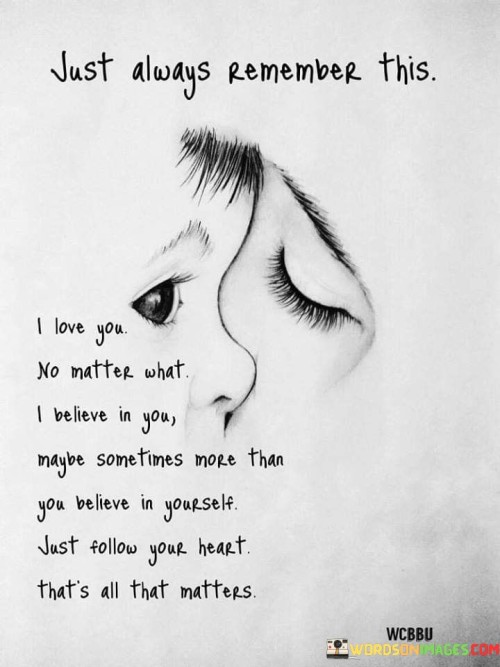 Just always remember this.
I love you.
No matter what.
I believe in you,
maybe sometimes more than
you believe in yourself.
Just follow your heart.
that's all that matters.
WCBBU
WORDSONIMAGES.COM